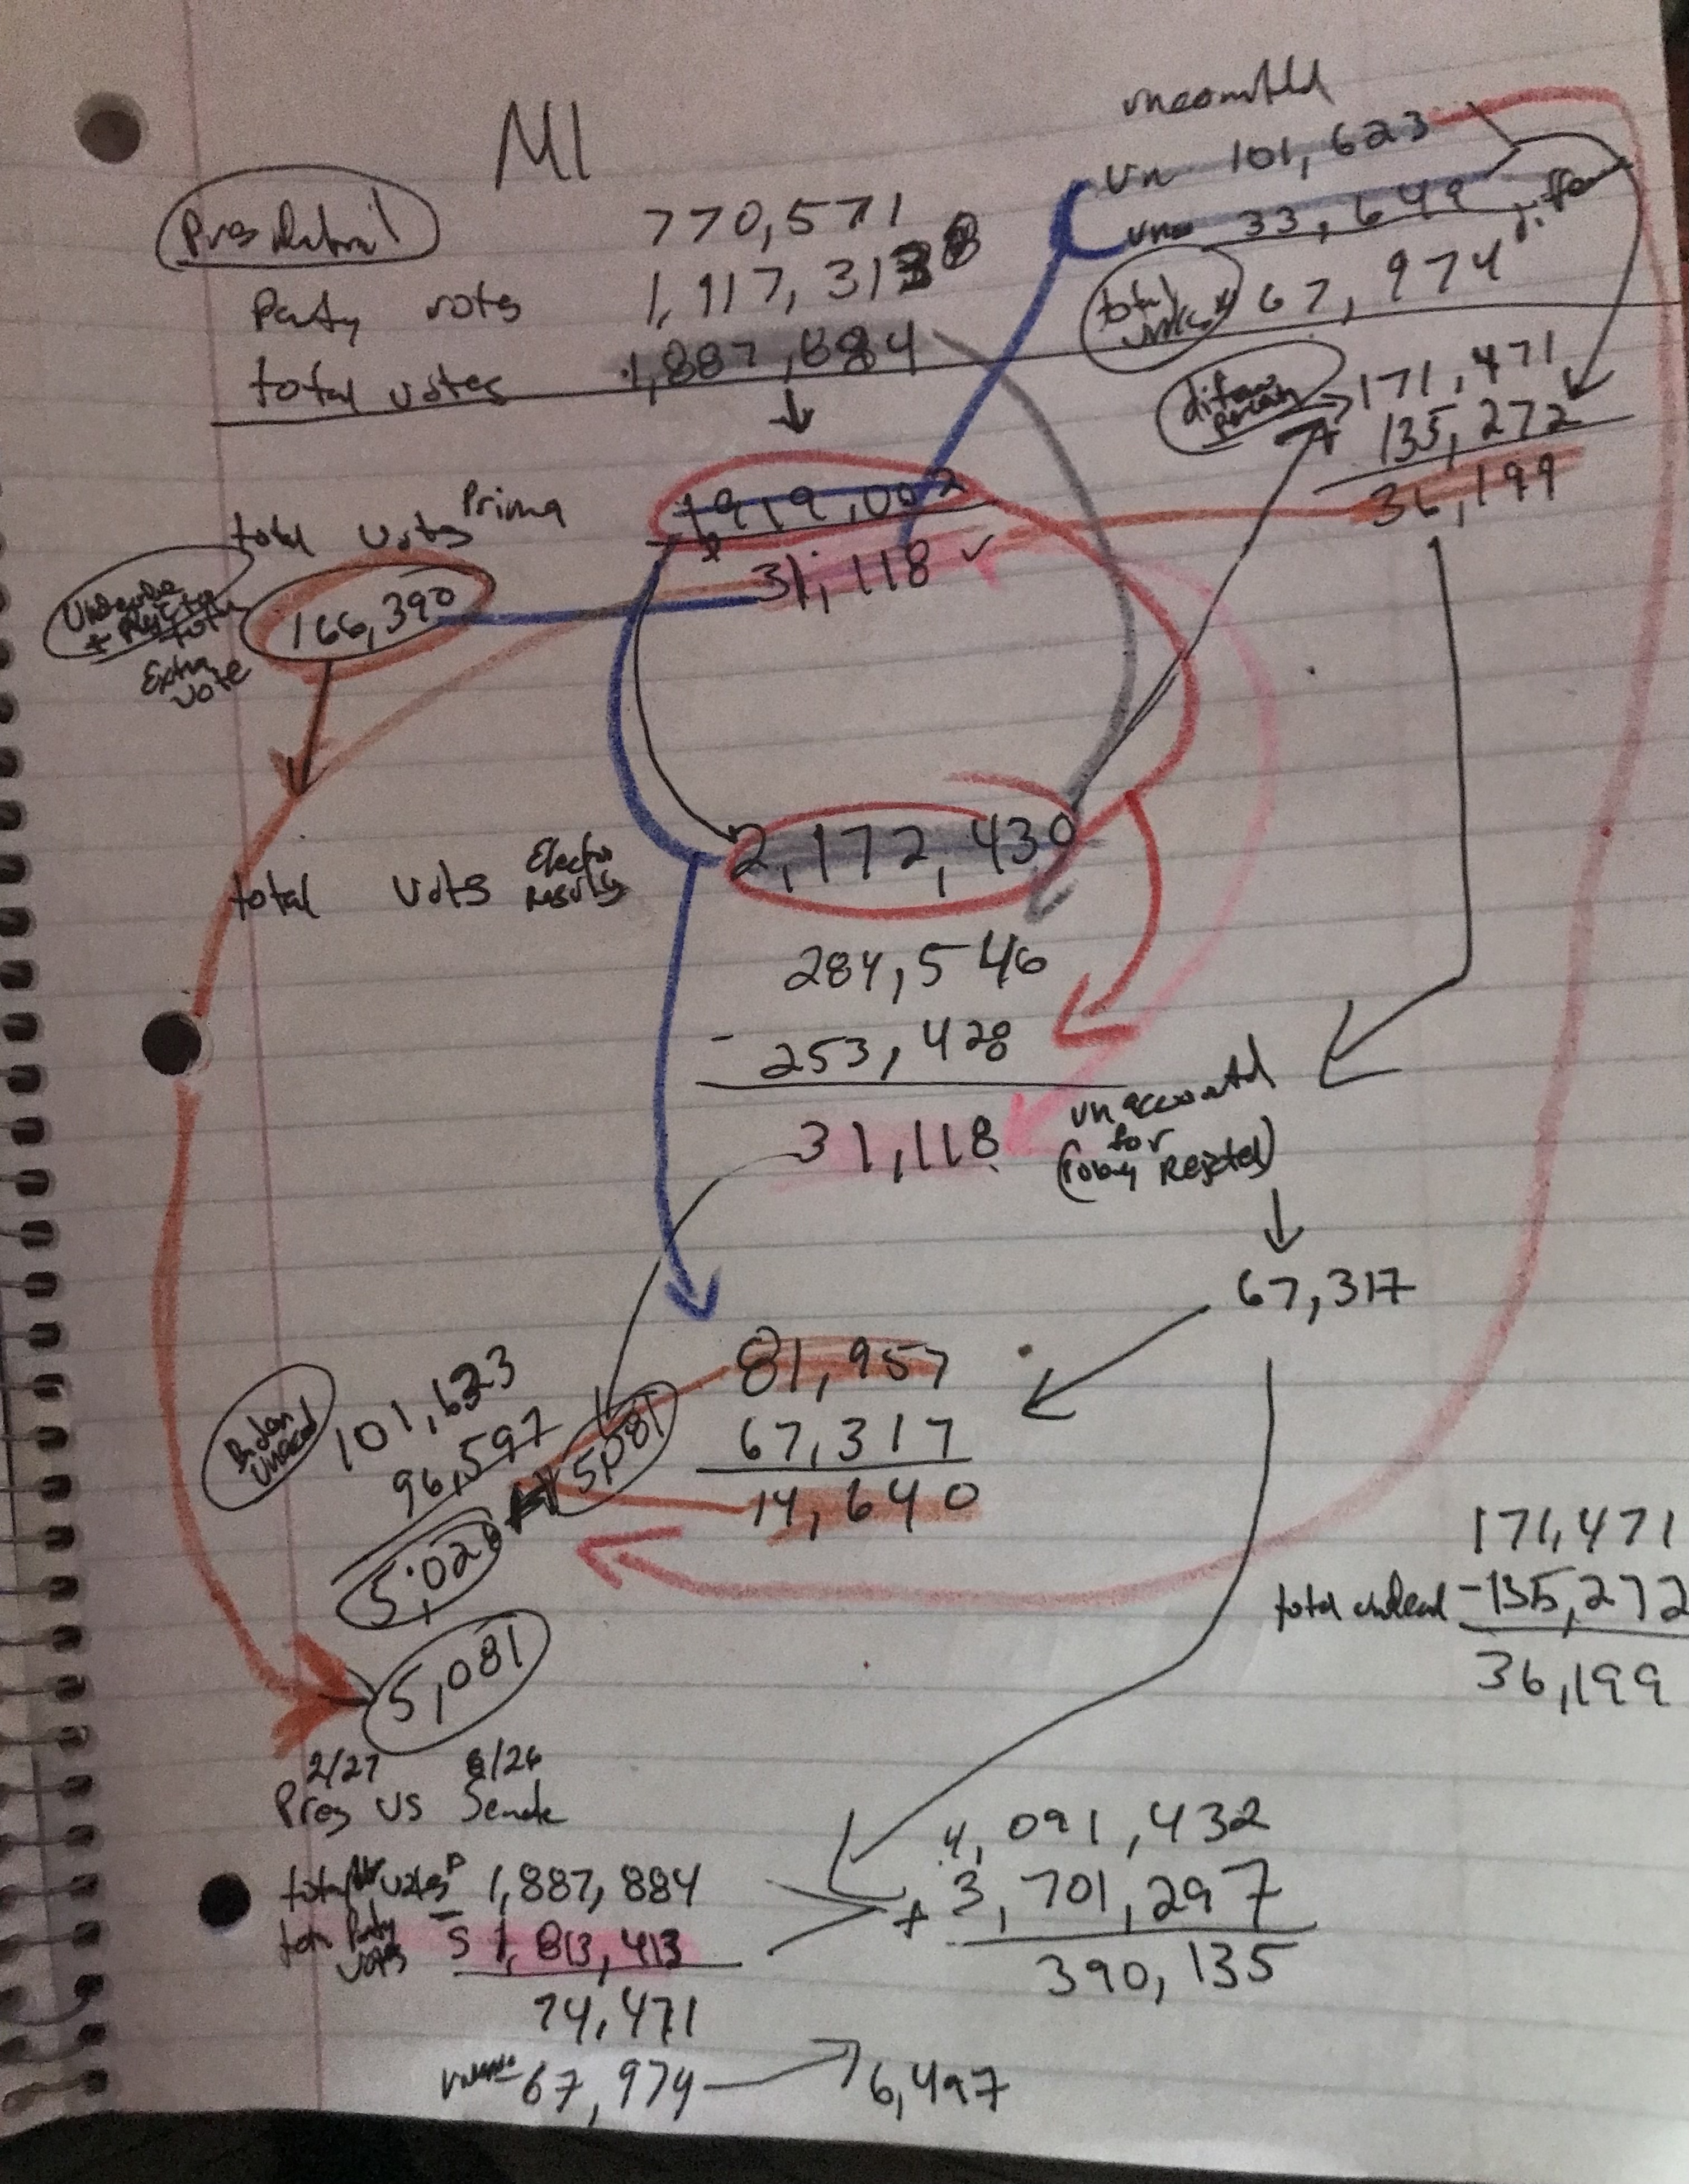 MI
uncomitted
Un 101,623
770,571
unc 33,649 differ
Party votes 1,917,313
total 67,974
total votes 1,887,884
171,471
135,272
36,199
total votes Prima 1,919,002
31,118 ✓
166,390
total
Extra
vote
total vots Elector results 2,172,430
284,546
- 253,428
31,118
unaccounted
for
67,317
81,957
67,317
14,640
101,623
96,597
5,081
5,026
5,081
171,471
-135,272
36,199
2/27 8/26
Pres vs Senate
4,091,432
+ 3,701,297
390,135
1,887,884
- S 1,813,413
74,471
67,974 → 6,497